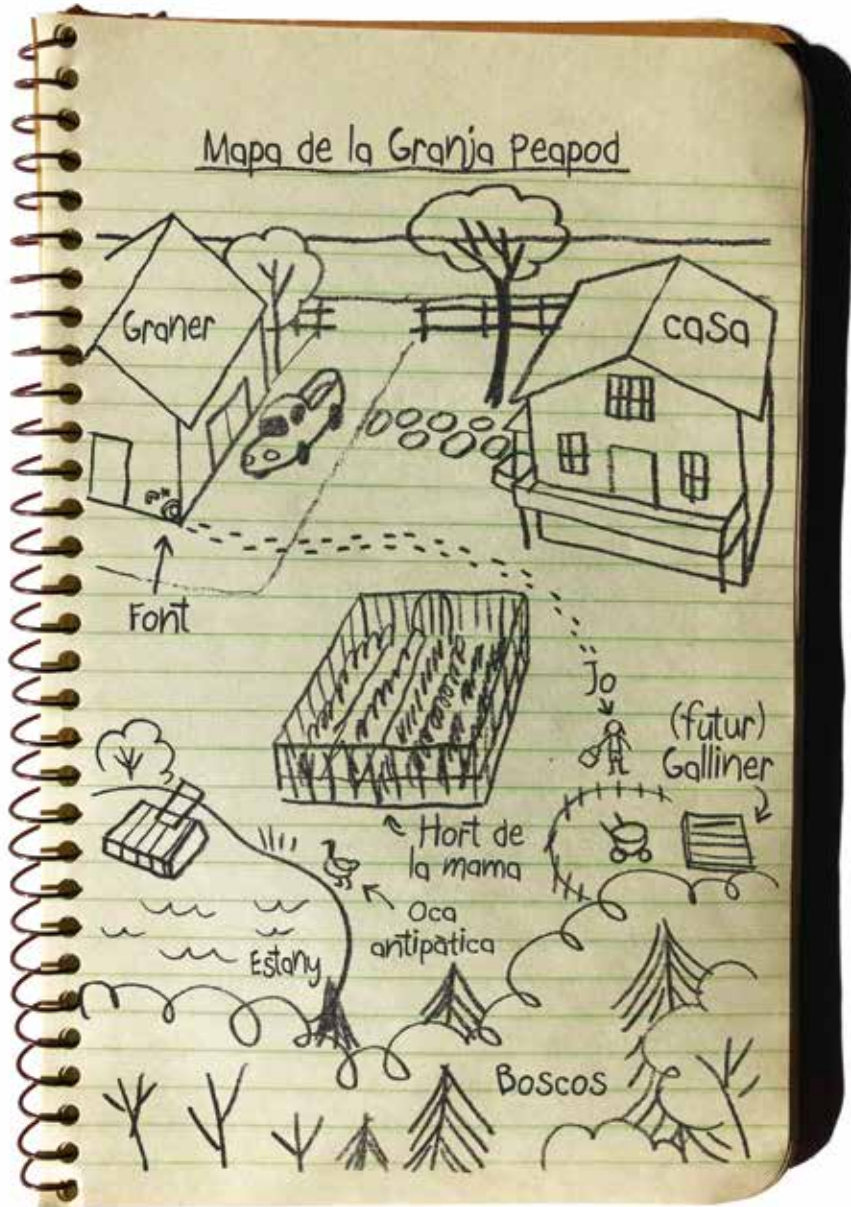 Mapa de la Granja Peapod
Graner
caSa
Font
Jo
(futur)
Galliner
Hort de
la mama
Oca
antipàtica
Estany
Boscos